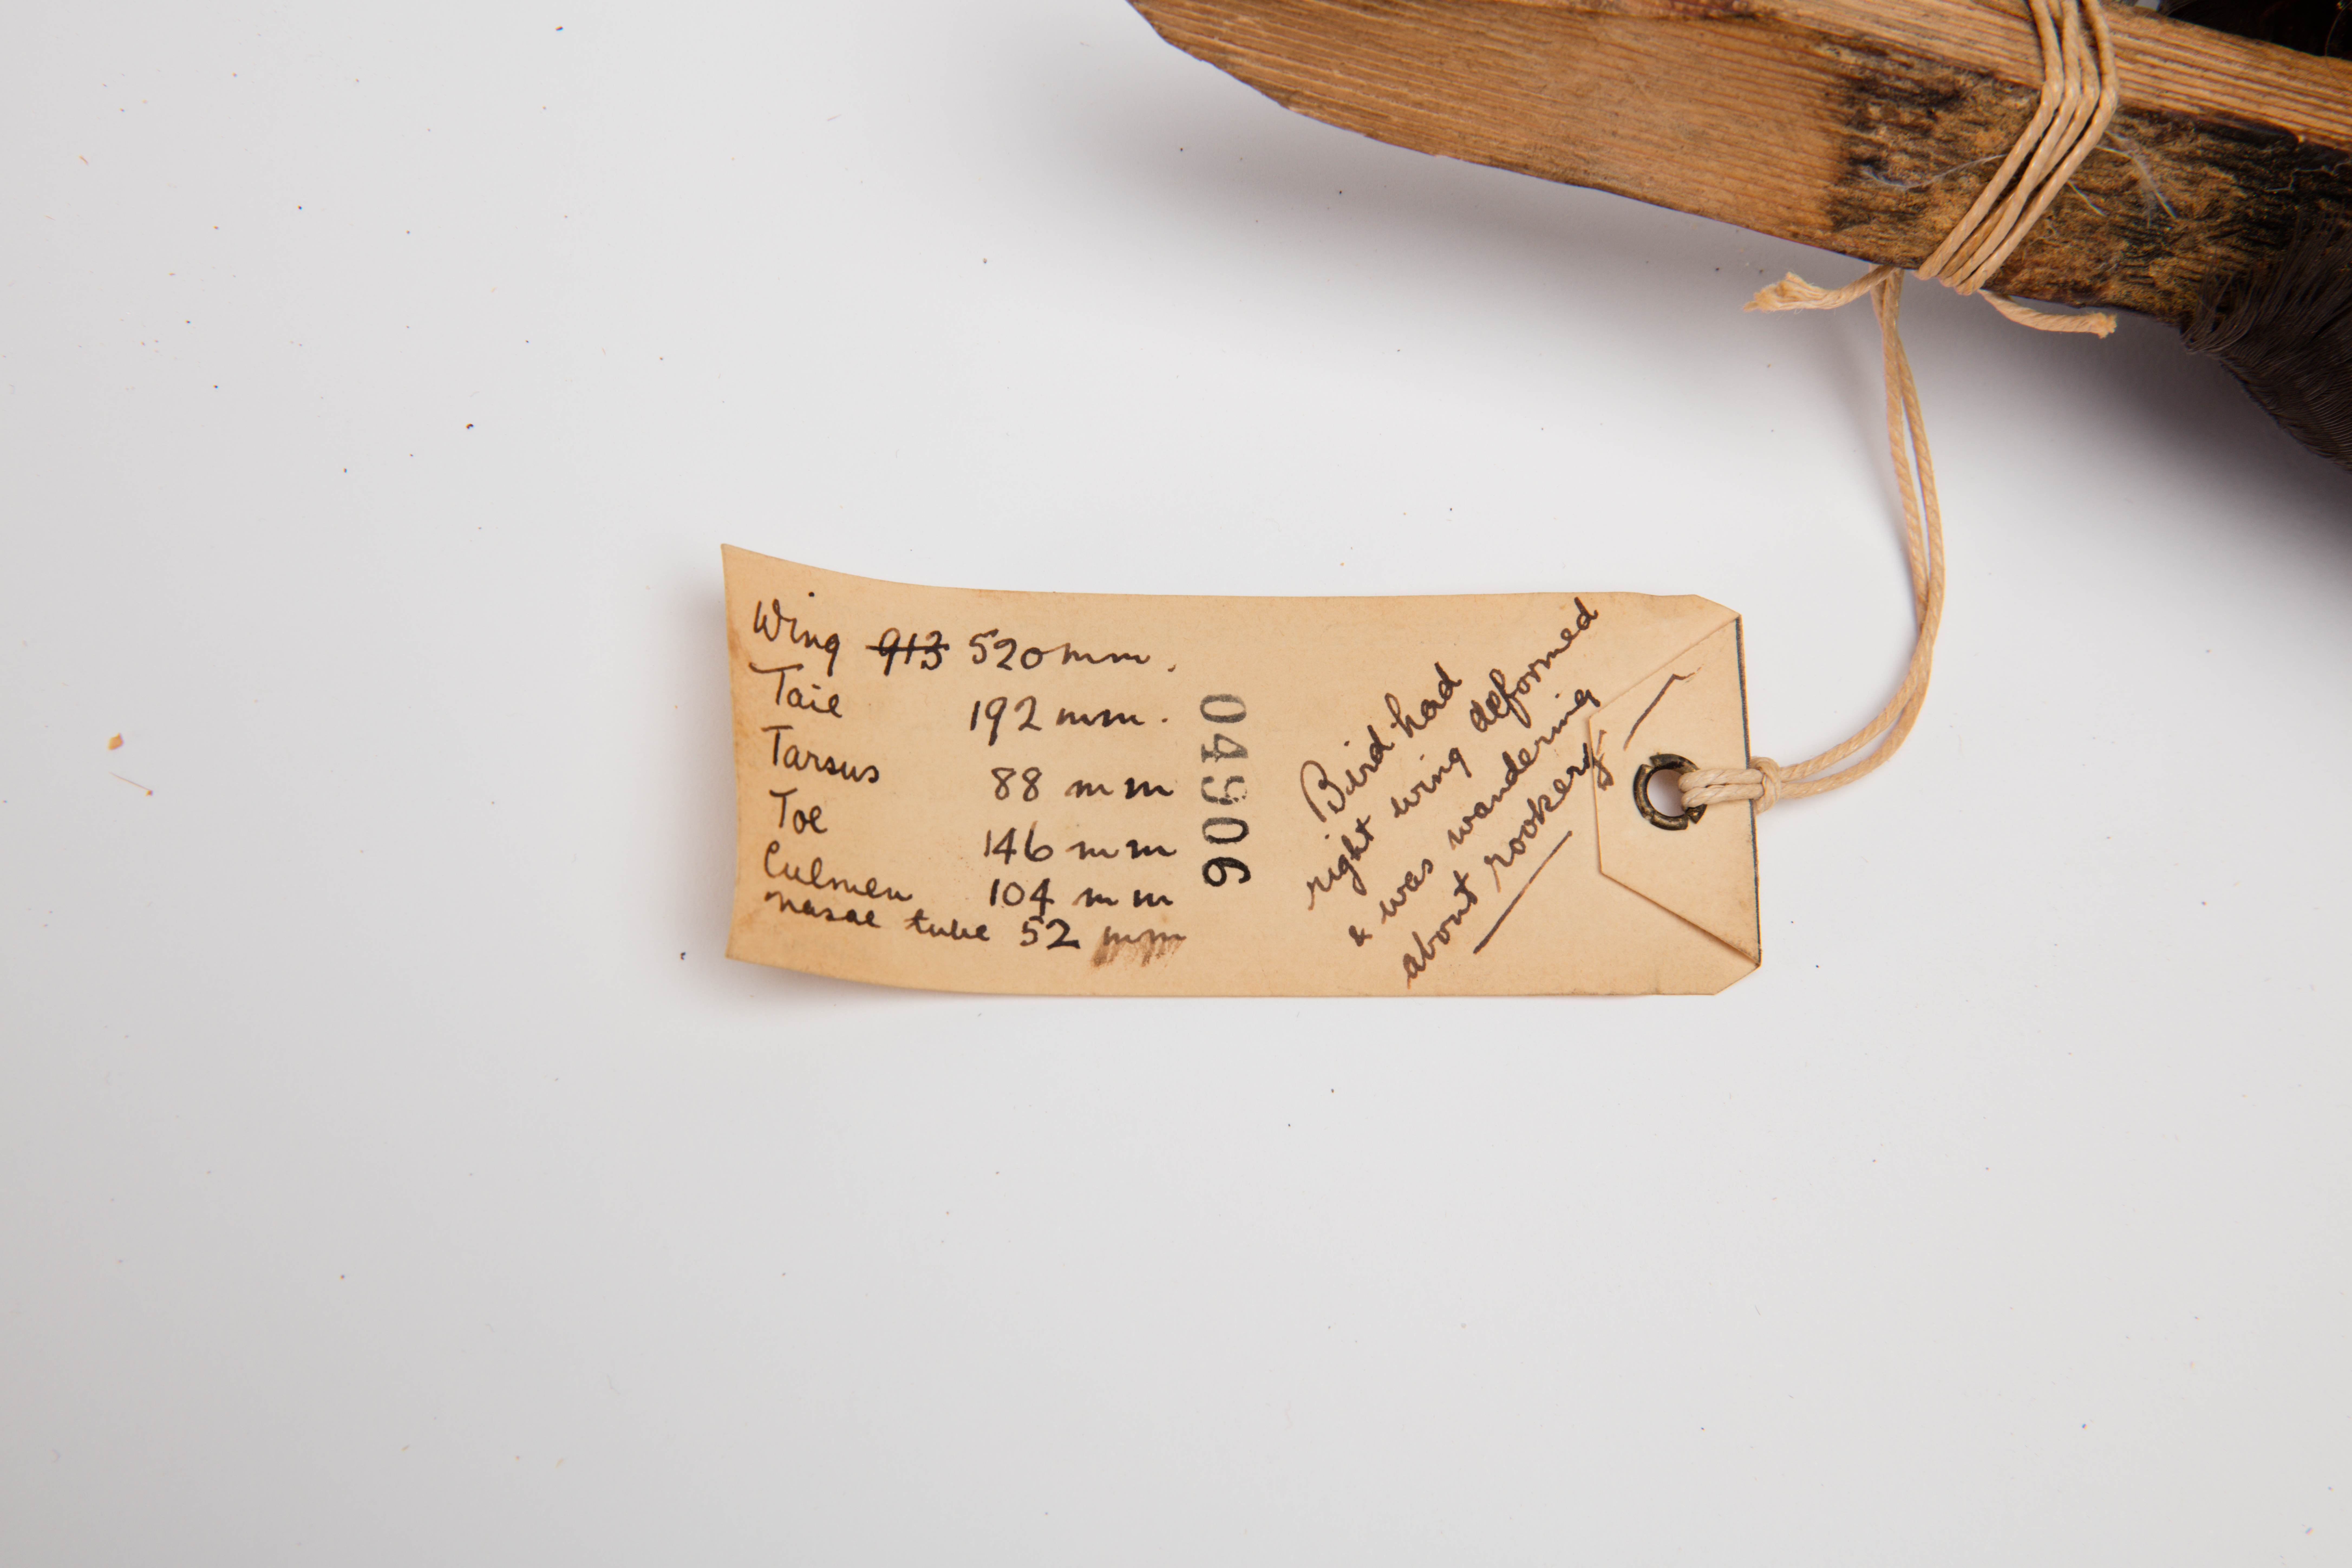 Wing 913 520 mm.
Tail 192 mm.
Tarsus 88 mm
Toe 146 mm
Culmen 104 mm
nasal tube 52 mm
04906
Bird had
right wing deformed
& was wandering
about rookery.